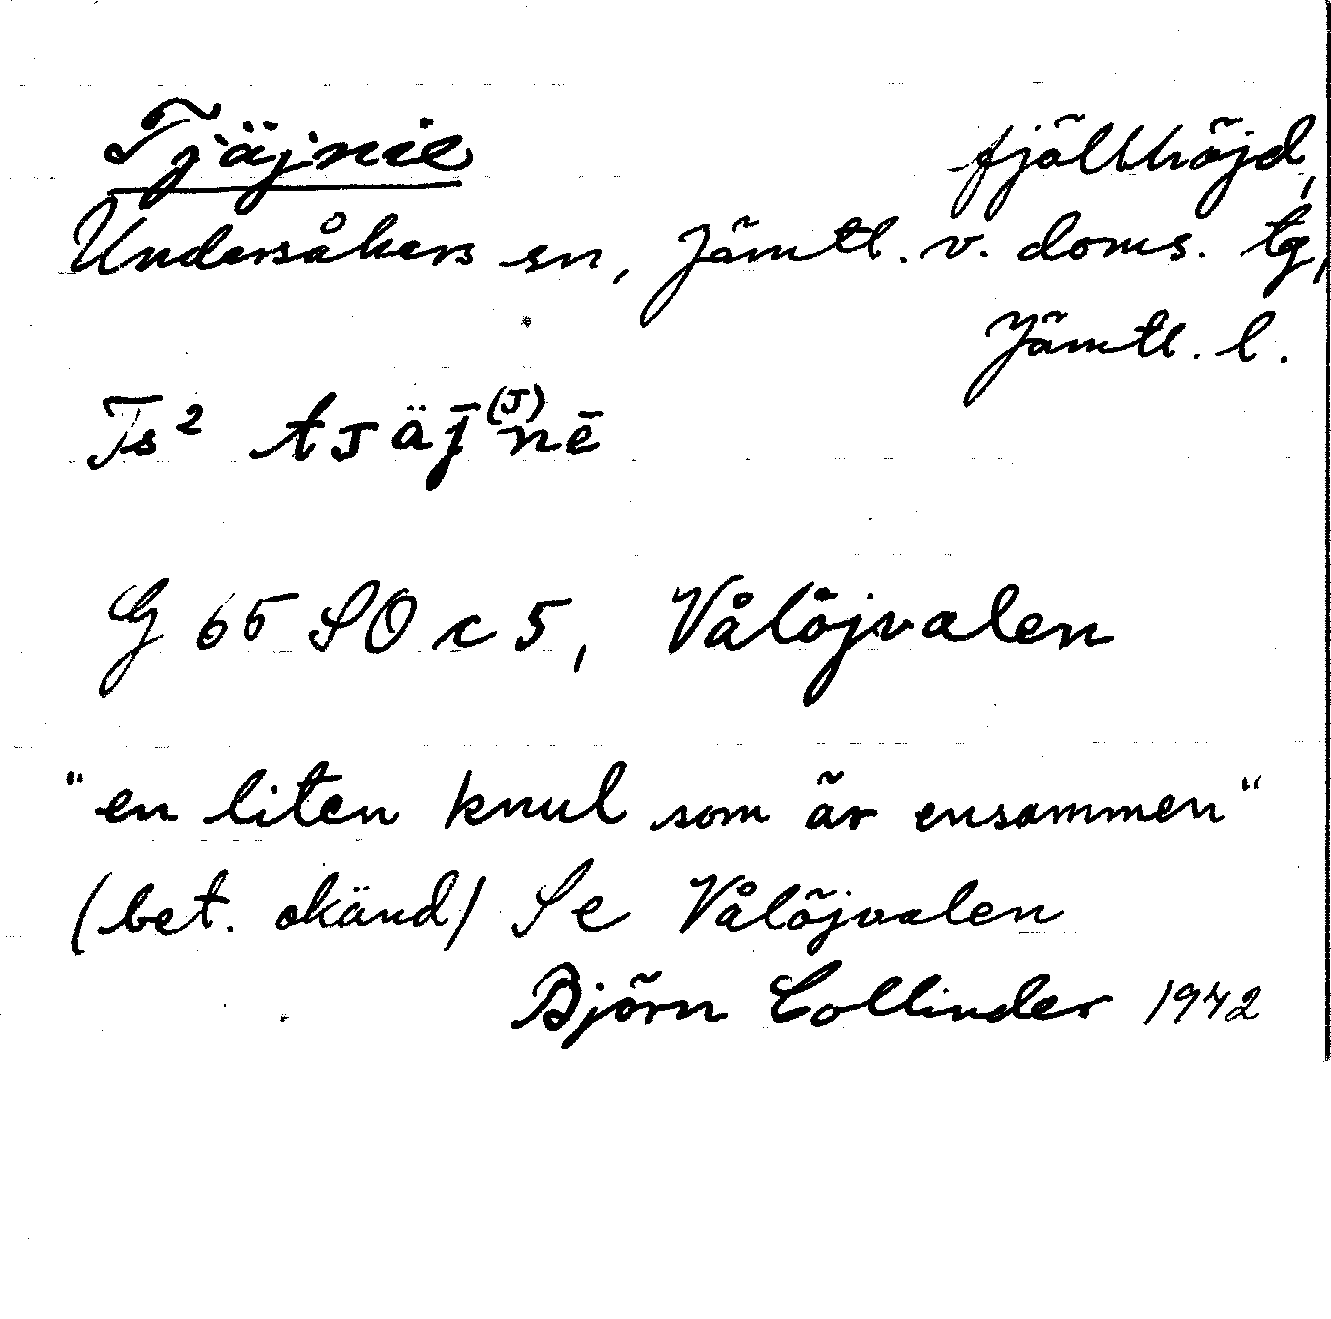 Tjäjnie fjällhöjd,
Undersåkers sn, Jämtl. v. doms. tg,
Jämtl. l.
Ts² tᴊäj̄⁽ᴶ⁾nē
G 65 SO c 5, Vålöjvalen
"en liten knul som är ensammen"
(bet. okänd) Se Vålöjvalen
Björn Collinder 1942